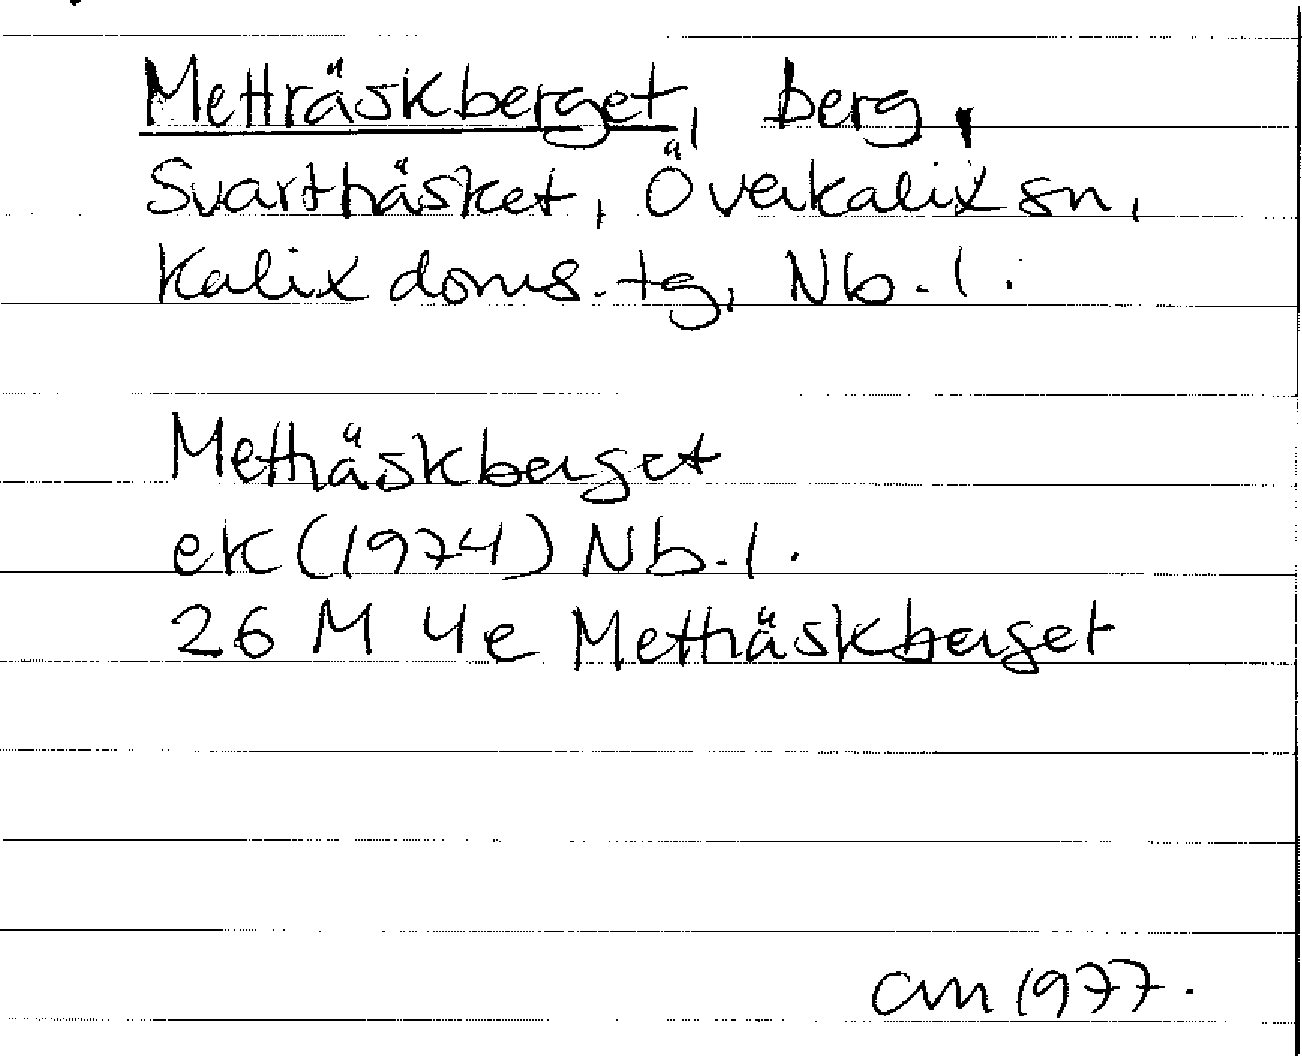 Metträskberget, berg,
Svartträsket, Överkalix sn,
Kalix doms. tg, Nb. l.
Metträskberget
ek (1974) Nb. l.
26 M 4e Metträskberget
am 1977.